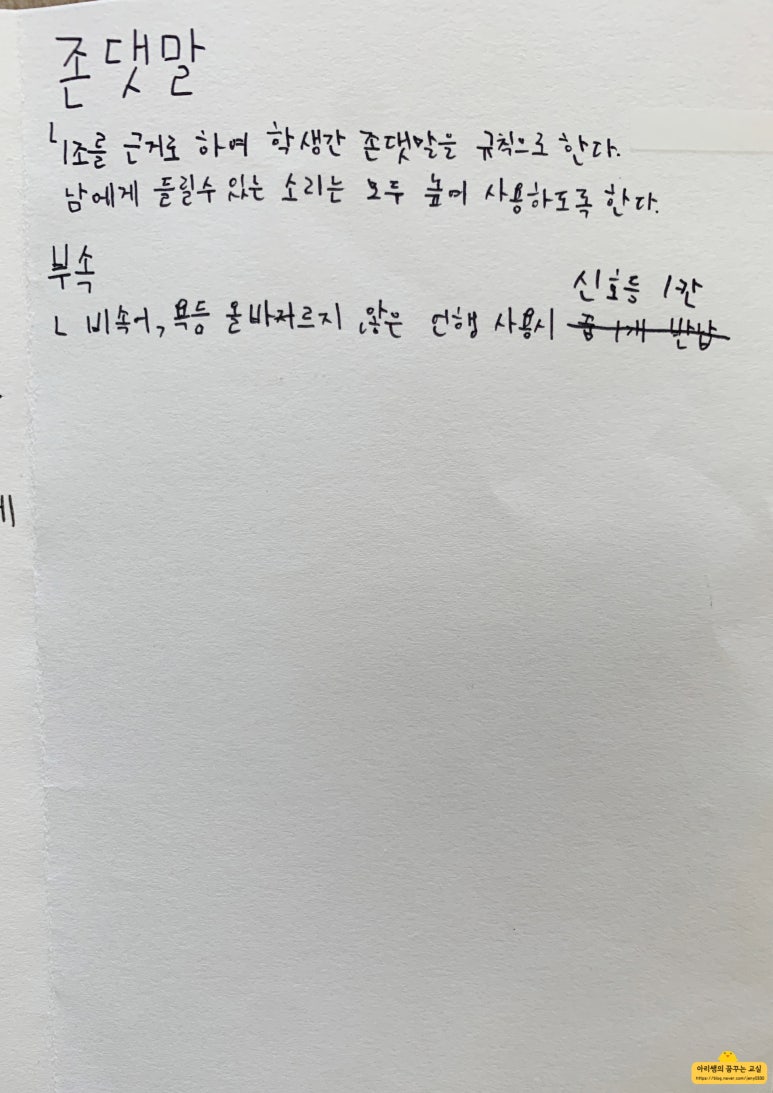 존댓말
ㄴ1조를 근거로 하여 학생간 존댓말을 규칙으로 한다.
남에게 들릴수 있는 소리는 모두 높여 사용하도록 한다.
부속
신호등 1칸
ㄴ 비속어, 욕등 올바자르지 않은 언행 사용시 꿈 1개 반납
아리쌤의 꿈꾸는 교실
https://blog.naver.com/jeny0330